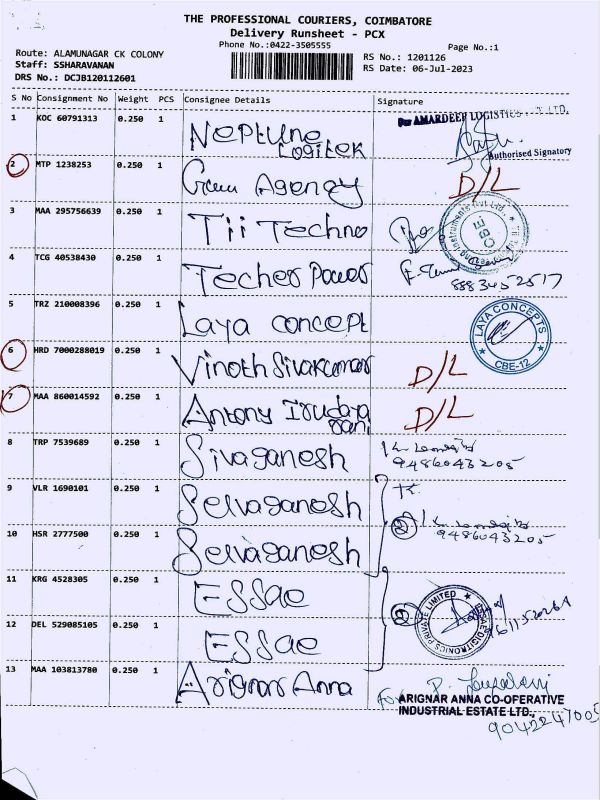 THE PROFESSIONAL COURIERS, COIMBATORE
Delivery Runsheet - PCX
Phone No.:0422-3505555 Page No.:1
Route: ALAMUNAGAR CK COLONY RS No.: 1201126
Staff: SSHARAVANAN RS Date: 06-Jul-2023
DRS No.: DCJB120112601
S No Consignment No Weight PCS Consignee Details Signature
1 KOC 60791313 0.250 1 Neptune Logitek For AMARDEEP LOGISTICS LTD.
Authorised Signatory
2 MTP 1238253 0.250 1 Agency D/L
3 MAA 295756639 0.250 1 Tii Techno CBE
4 TCG 40538430 0.250 1 Techer Power 8883452517
5 TRZ 210008396 0.250 1 Laya concept LAYA CONCEPTS CBE-12
6 HRD 7000288019 0.250 1 Vinoth Sivakumar D/L
7 MAA 860014592 0.250 1 Antony Irudaya Rani D/L
8 TRP 7539689 0.250 1 Sivaganesh 9486043205
9 VLR 1690101 0.250 1 Selvaganesh
10 HSR 2777500 0.250 1 Selvaganesh 2 9486043205
11 KRG 4528305 0.250 1 ESSae
12 DEL 529085105 0.250 1 ESSae 2 ESSAE DIGITRONICS PRIVATE LIMITED
13 MAA 103813780 0.250 1 Arignar Anna For
ARIGNAR ANNA CO-OPERATIVE
INDUSTRIAL ESTATE LTD.,
9042247005